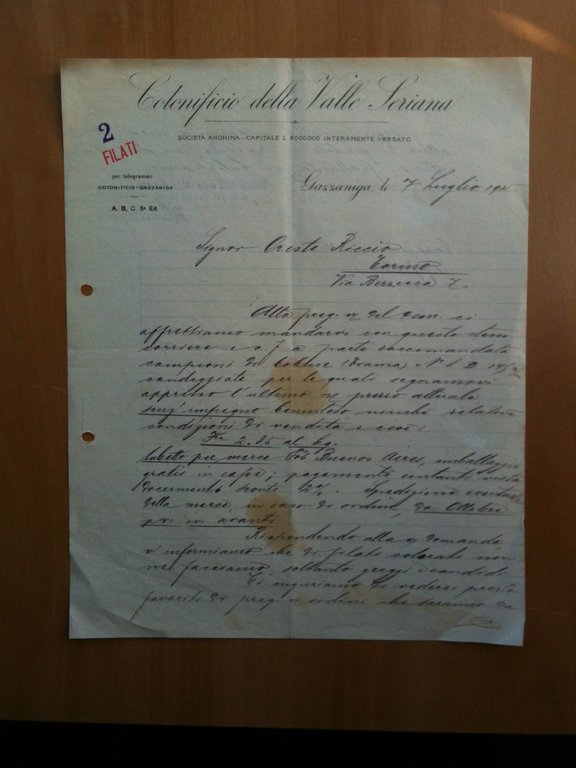 Cotonificio della Valle Seriana
SOCIETÀ ANONIMA - CAPITALE L. 6000000 INTERAMENTE VERSATO
2
FILATI
per telegrammi:
COTONIFICIO - GAZZANIGA
A. B. C. 5ª Ed.
Gazzaniga, li 7 Luglio
Signor Oreste Riccio
Torino
Via 7.
Alla preg. del ci
affrettiamo mandarvi con questo stesso
corriere e a parte raccomandata
campioni di (Trama) N.
candeggiate per le quali segnamovi
appresso l'ultimo prezzo attuale
senz'impegno nonchè relative
condizioni di vendita e cioè:
Fr. 2.25 al kg.
per merce Fob Buenos Aires, imballaggio
gratis in casse; pagamento contanti
documenti sconto 2%. Spedizione
della merce, in caso di ordini, da Ottobre
in avanti
Rispondendo alla domanda
v'informiamo che di filati colorati non
ne facciamo, soltanto greggi e candidi.
Ci auguriamo di vederci presto
favoriti di preg. ordini che saranno